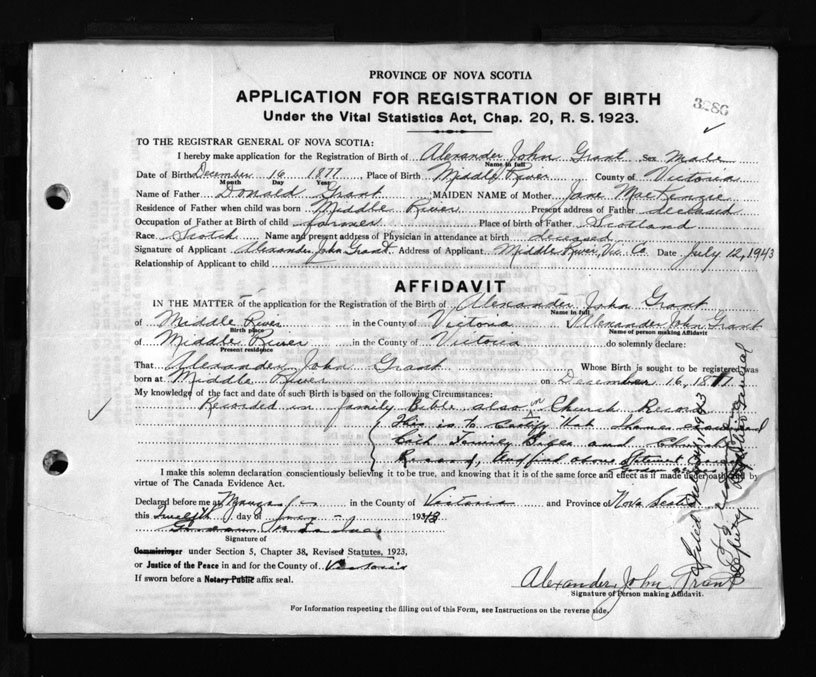 PROVINCE OF NOVA SCOTIA
APPLICATION FOR REGISTRATION OF BIRTH
3286
Under the Vital Statistics Act, Chap. 20, R. S. 1923.
TO THE REGISTRAR GENERAL OF NOVA SCOTIA:
I hereby make application for the Registration of Birth of Alexander John Grant Sex Male
Name in full
Date of Birth December 16 1877 Place of Birth Middle River County of Victoria
Month Day Year
Name of Father Donald Grant MAIDEN NAME of Mother Jane MacKenzie
Residence of Father when child was born Middle River Present address of Father deceased
Occupation of Father at Birth of child farmer Place of birth of Father Scotland
Race Scotch Name and present address of Physician in attendance at birth deceased
Signature of Applicant Alexander John Grant Address of Applicant Middle River Vic. Co. Date July 12, 1943
Relationship of Applicant to child
AFFIDAVIT
IN THE MATTER of the application for the Registration of the Birth of Alexander John Grant
Name in full
of Middle River in the County of Victoria I Alexander John Grant
Birth place Name of person making Affidavit
of Middle River in the County of Victoria do solemnly declare:
Present residence
That Alexander John Grant Whose Birth is sought to be registered was
born at Middle River on December 16, 1877.
My knowledge of the fact and date of such Birth is based on the following Circumstances:
Recorded in family Bible also in Church Record
This is to Certify that I have
both Family Bible and Church
Record, and find above
I make this solemn declaration conscientiously believing it to be true, and knowing that it is of the same force and effect as if made under oath by
virtue of The Canada Evidence Act.
Declared before me at in the County of Victoria and Province of Nova Scotia
this Twelfth day of July 1943
Signature of
Commissioner under Section 5, Chapter 38, Revised Statutes, 1923,
or Justice of the Peace in and for the County of Victoria
If sworn before a Notary Public affix seal.
Alexander John Grant
Signature of Person making Affidavit.
For Information respecting the filling out of this Form, see Instructions on the reverse side.
Deputy Registrar General